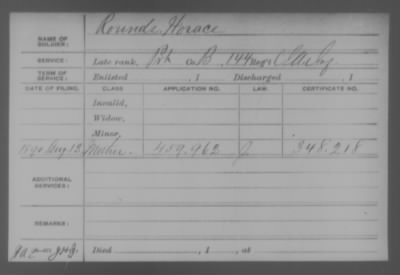 NAME OF SOLDIER: Rounds Horace
SERVICE: Late rank, Pvt Co B, 144 N.Y.
TERM OF SERVICE: Enlisted , 1 Discharged , 1
DATE OF FILING. CLASS APPLICATION NO. LAW. CERTIFICATE NO.
Invalid,
Widow,
Minor,
1890 Aug 12 Mother 459.962 J. 348.218
ADDITIONAL SERVICES:
REMARKS:
Died , 1 , at